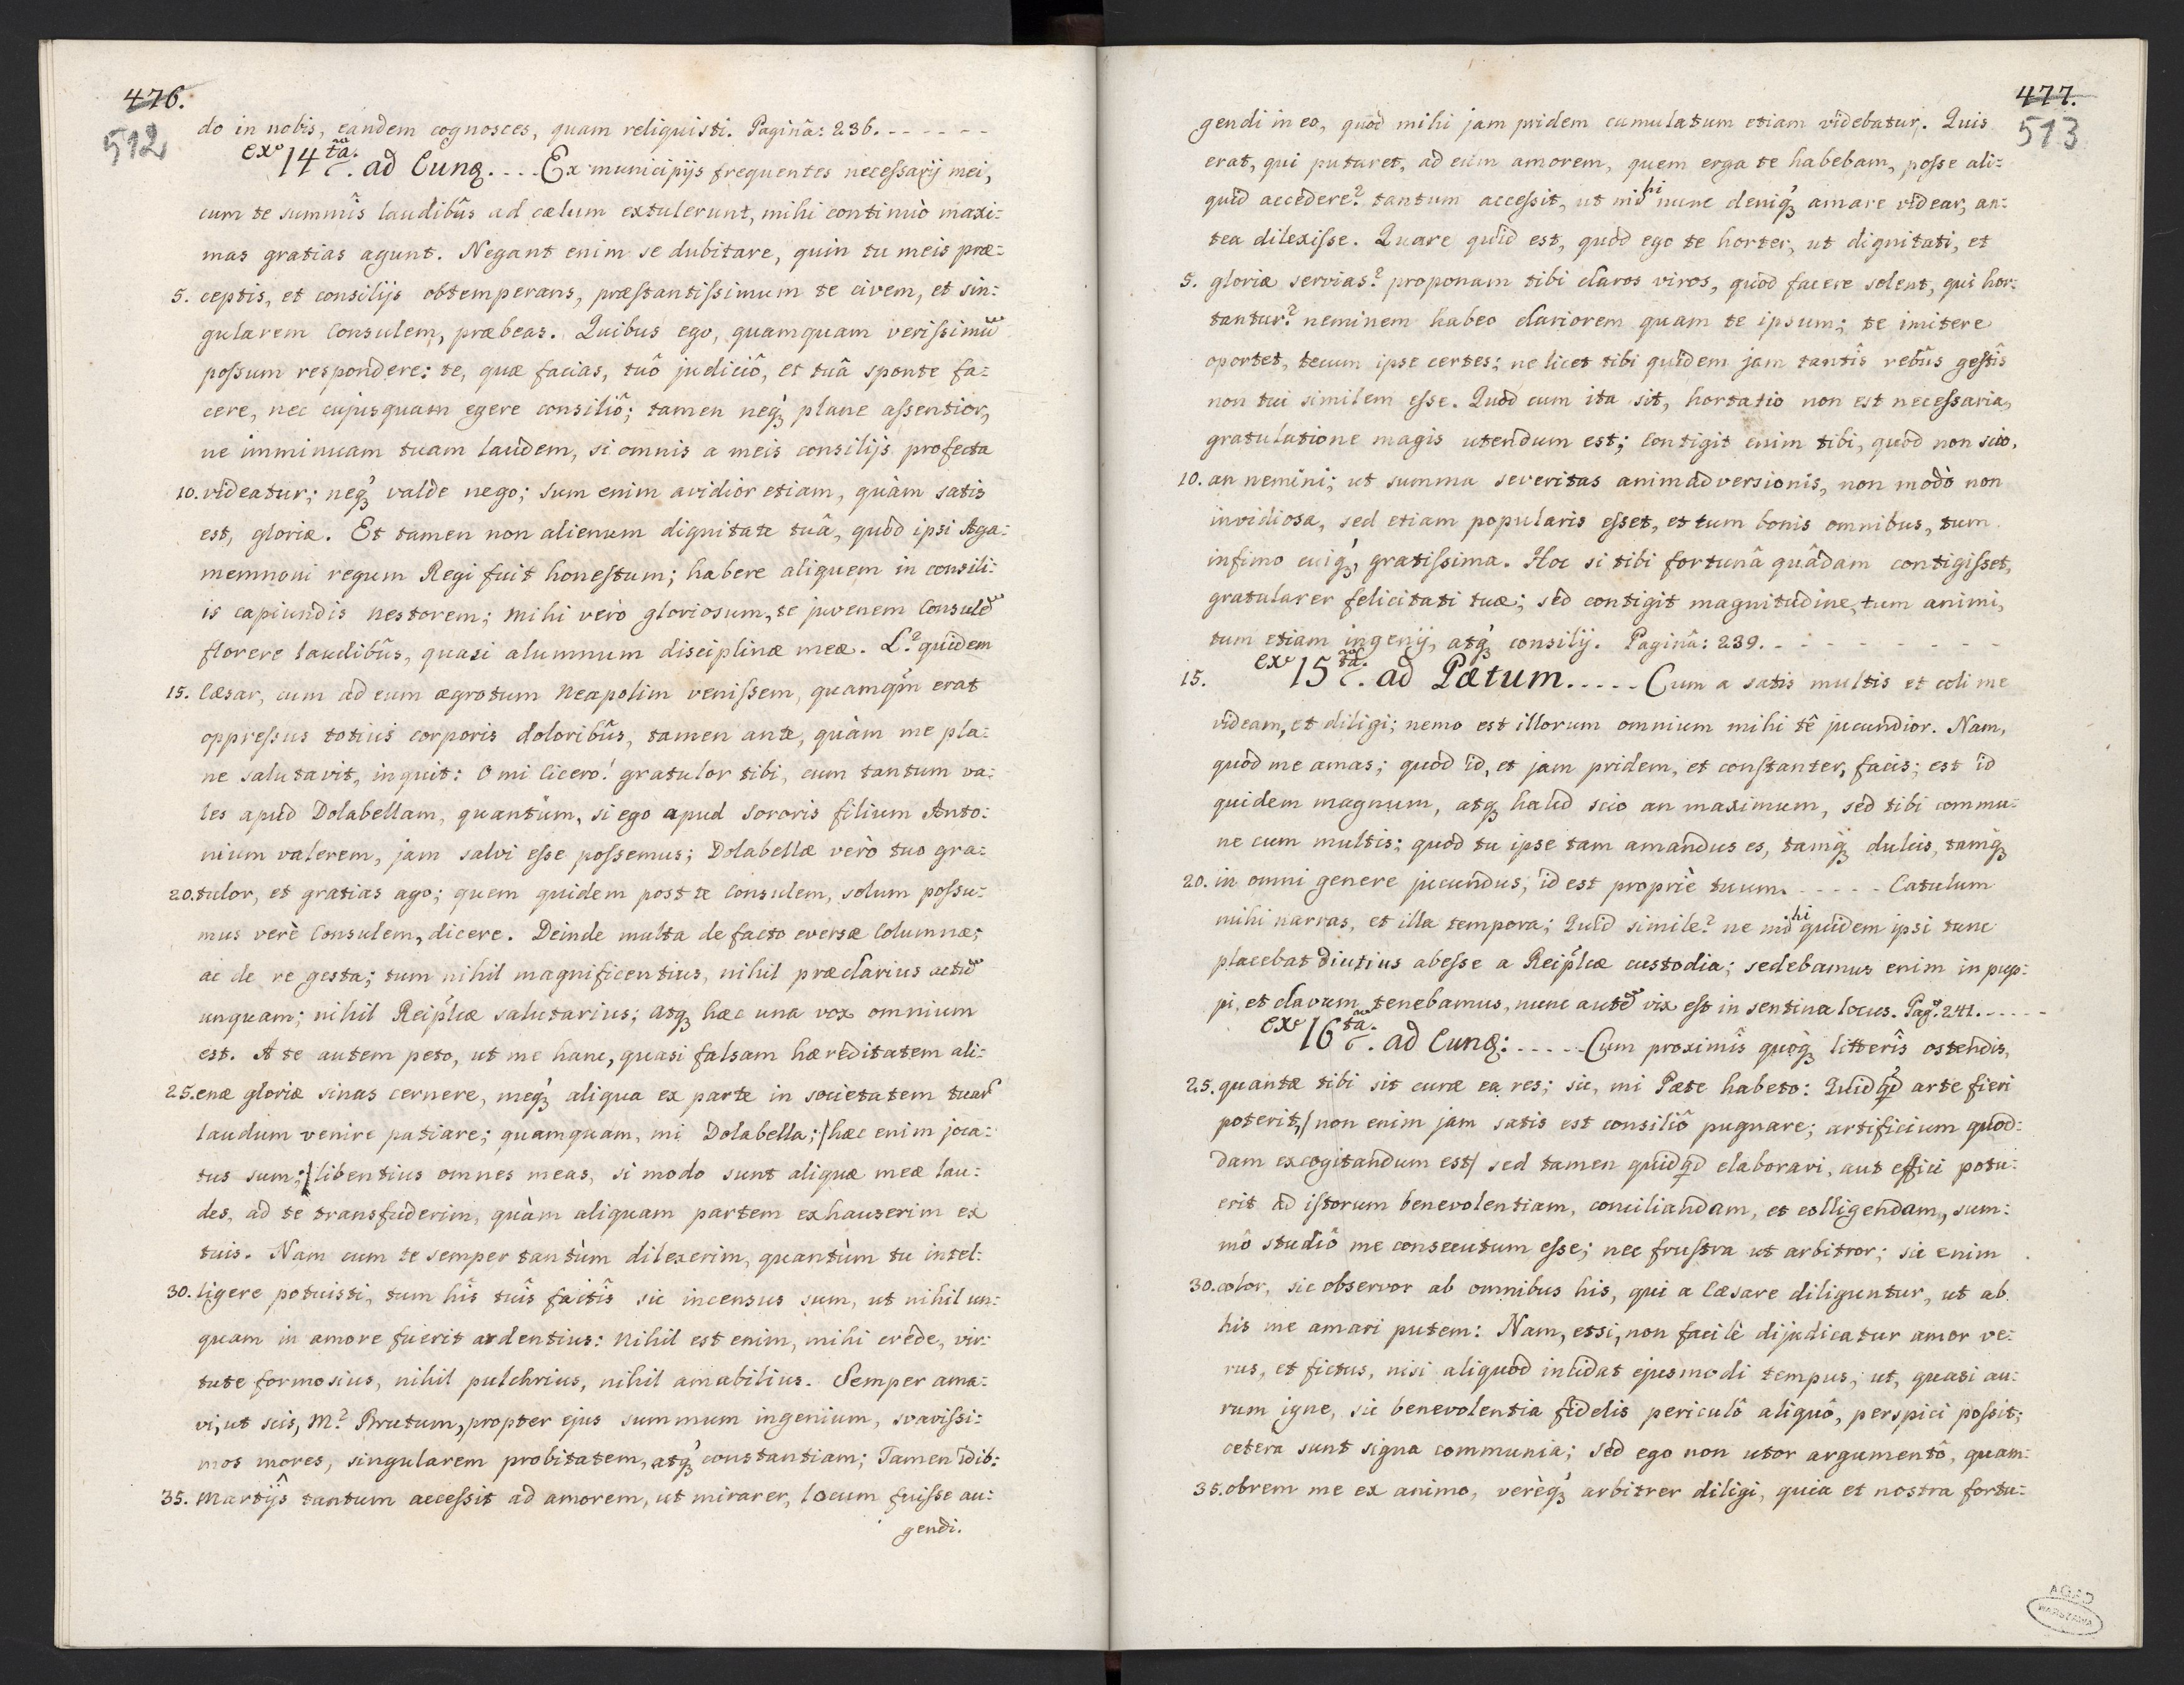 476.
512
do in nobis, eandem cognosces, quam reliquisti. Paginâ: 236. - - - - - -
ex 14ta. ad Eunđ. - - - Ex municipijs frequentes necessarij mei,
cum te summîs laudibûs ad cælum extulerunt, mihi continuò maxi:
mas gratias agunt. Negant enim se dubitare, quin tu meis præ:
5. ceptis, et consilijs obtemperans, præstantissimum te civem, et sin:
gularem Consulem, præbeas. Quibus ego, quamquam verissimũ
possum respondere: te, quæ facias, tuô judiciô, et tuâ sponte fa:
cere, nec cujusquam egere consiliô; tamen neq́ꝫ plane assentior,
ne imminuam tuam laudem, si omnis a meis consilijs profecta
10. videatur; neq́ꝫ valde nego; sum enim avidior etiam, quàm satis
est, gloriæ. Et tamen non alienum dignitate tuâ, quod ipsi Aga:
memnoni regum Regi fuit honestum; habere aliquem in consili:
is capiundis nestorem; mihi verò gloriosum, te juvenem Consulẽ
florere laudibûs, quasi alumnum disciplinæ meæ. L.s quidem
15. Cæsar, cum ad eum ægrotum Neapolim venissem, quamq̃m erat
oppressus totius corporis doloribûs, tamen ante, quàm me pla:
ne salutavit, inquit: O mi Cicero! gratulor tibi, cum tantum va:
les apud Dolabellam, quantùm, si ego apud sororis filium Anto:
nium valerem, jam salvi esse possemus; Dolabellæ verò tuo gra:
20. tulor, et gratias ago; quem quidem post te Consulem, solum possu:
mus verè Consulem, dicere. Deinde multa de facto eversæ Columnæ;
ac de re gesta; tum nihil magnificentius, nihil præclarius actũ
unquam; nihil Reip̃licæ salutarius; atqꝫ hæc una vox omnium
est. A te autem peto, ut me hanc, quasi falsam hæreditatem ali:
25. enæ gloriæ sinas cernere, meq́ꝫ aliqua ex parte in societatem tuarũ
laudum venire patiare; quamquam, mi Dolabella; /hæc enim joca:
tus sum;/ libentius omnes meas, si modo sunt aliquæ meæ lau:
des, ad te transfuderim, quàm aliquam partem exhauserim ex
tuis. Nam cum te semper tantùm dilexerim, quantùm tu intel:
30. ligere potuisti, tum hîs tuîs factîs sic incensus sum, ut nihil un:
quam in amore fuerit ardentius: Nihil est enim, mihi crede, vir:
tute formosius, nihil pulchrius, nihil amabilius. Semper ama:
vi, ut scis, M.s Brutum, propter ejus summum ingenium, svavissi:
mos mores, singularem probitatem, atq́ꝫ constantiam; Tamen idib:
35. Martijs tantum accessit ad amorem, ut mirarer, locum fuisse au:
gendi.
477.
513
gendi in eo, quod mihi jam pridem cumulatum etiam videbatur. Quis
erat, qui putaret, ad eum amorem, quem erga te habebam, posse ali:
quid accedere? tantum accessit, ut mihi nunc deniq́ꝫ amare videar, an:
tea dilexisse. Quare quid est, quòd ego te horter, ut dignitati, et
5. gloriæ servias? proponam tibi claros viros, quod facere solent, qui hor:
tantur? neminem habeo clariorem quam te ipsum; te imitere
oportet, tecum ipse certes; ne licet tibi quidem jam tantîs rebûs gestîs
non tui similem esse. Quod cum ita sit, hortatio non est necessaria,
gratulatione magis utendum est; Contigit enim tibi, quod non scio,
10. an nemini; ut summa severitas animadversionis, non modò non
invidiosa, sed etiam popularis esset, et tum bonis omnibus, tum
infimo cuiq́ꝫ, gratissima. Hoc si tibi fortunâ quâdam contigisset,
gratularer felicitati tuæ; sed contigit magnitudine, tum animi,
tum etiam ingenij, atq́ꝫ consilij. Paginâ: 239. - - - - - - - - -
15. ex 15ta. ad Pætum. - - - - - Cum a satis multis et coli me
videam, et diligi; nemo est illorum omnium mihi tê jucundior. Nam,
quòd me amas; quòd id, et jam pridem, et constanter, facis; est id
quidem magnum, atqꝫ haud scio an maximum, sed tibi commu:
ne cum multis: quod tu ipse tam amandus es, tamq́ꝫ dulcis, tamq́ꝫ
20. in omni genere jucundus; id est propriè tuum. - - - - - Catulum
mihi narras, et illa tempora; Quid simile? ne mihi quidem ipsi tunc
placebat diutius abesse a Reip̃licæ custodia; sedebamus enim in pup:
pi, et clavum tenebamus, nunc autẽ vix est in sentina locus. Pag.a 241. - - - - -
ex 16ta. ad Eunđ: - - - - - Cum proximîs quoq̀ꝫ litterîs ostendis,
25. quantæ tibi sit curæ ea res; sic, mi Pæte habeto: Quidq́d arte fieri
poterit, /non enim jam satis est consiliô pugnare; artificium quod:
dam excogitandum est/ sed tamen quidq́d elaborari, aut effici potu:
erit ad istorum benevolentiam, conciliandam, et colligendam, sum:
mô studiô me consecutum esse; nec frustra ut arbitror; sic enim
30. color, sic observor ab omnibus his, qui a Cæsare diliguntur, ut ab
his me amari putem: Nam, etsi, non facilè dijudicatur amor ve:
rus, et fictus, nisi aliquod incidat ejusmodi tempus, ut, quasi au:
rum igne, sic benevolentia fidelis periculô aliquô, perspici possit;
cetera sunt signa communia; sed ego non utor argumentô, quam:
35. obrem me ex animo, verèq́ꝫ arbitrer diligi, quia et nostra fortu:
AGAD
WARSZAWA